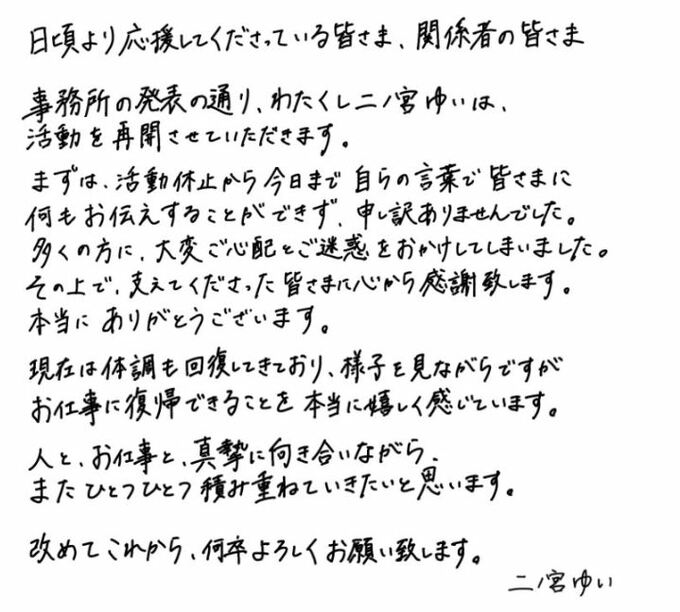 日頃より応援してくださっている皆さま、関係者の皆さま
事務所の発表の通り、わたくし二ノ宮ゆいは、
活動を再開させていただきます。
まずは、活動休止から今日まで自らの言葉で皆さまに
何もお伝えすることができず、申し訳ありませんでした。
多くの方に、大変ご心配とご迷惑をおかけしてしまいました。
その上で、支えてくださった皆さまに心から感謝致します。
本当にありがとうございます。
現在は体調も回復してきており、様子を見ながらですが
お仕事に復帰できることを本当に嬉しく感じています。
人と、お仕事と、真摯に向き合いながら、
またひとつひとつ積み重ねていきたいと思います。
改めてこれから、何卒よろしくお願い致します。
二ノ宮ゆい